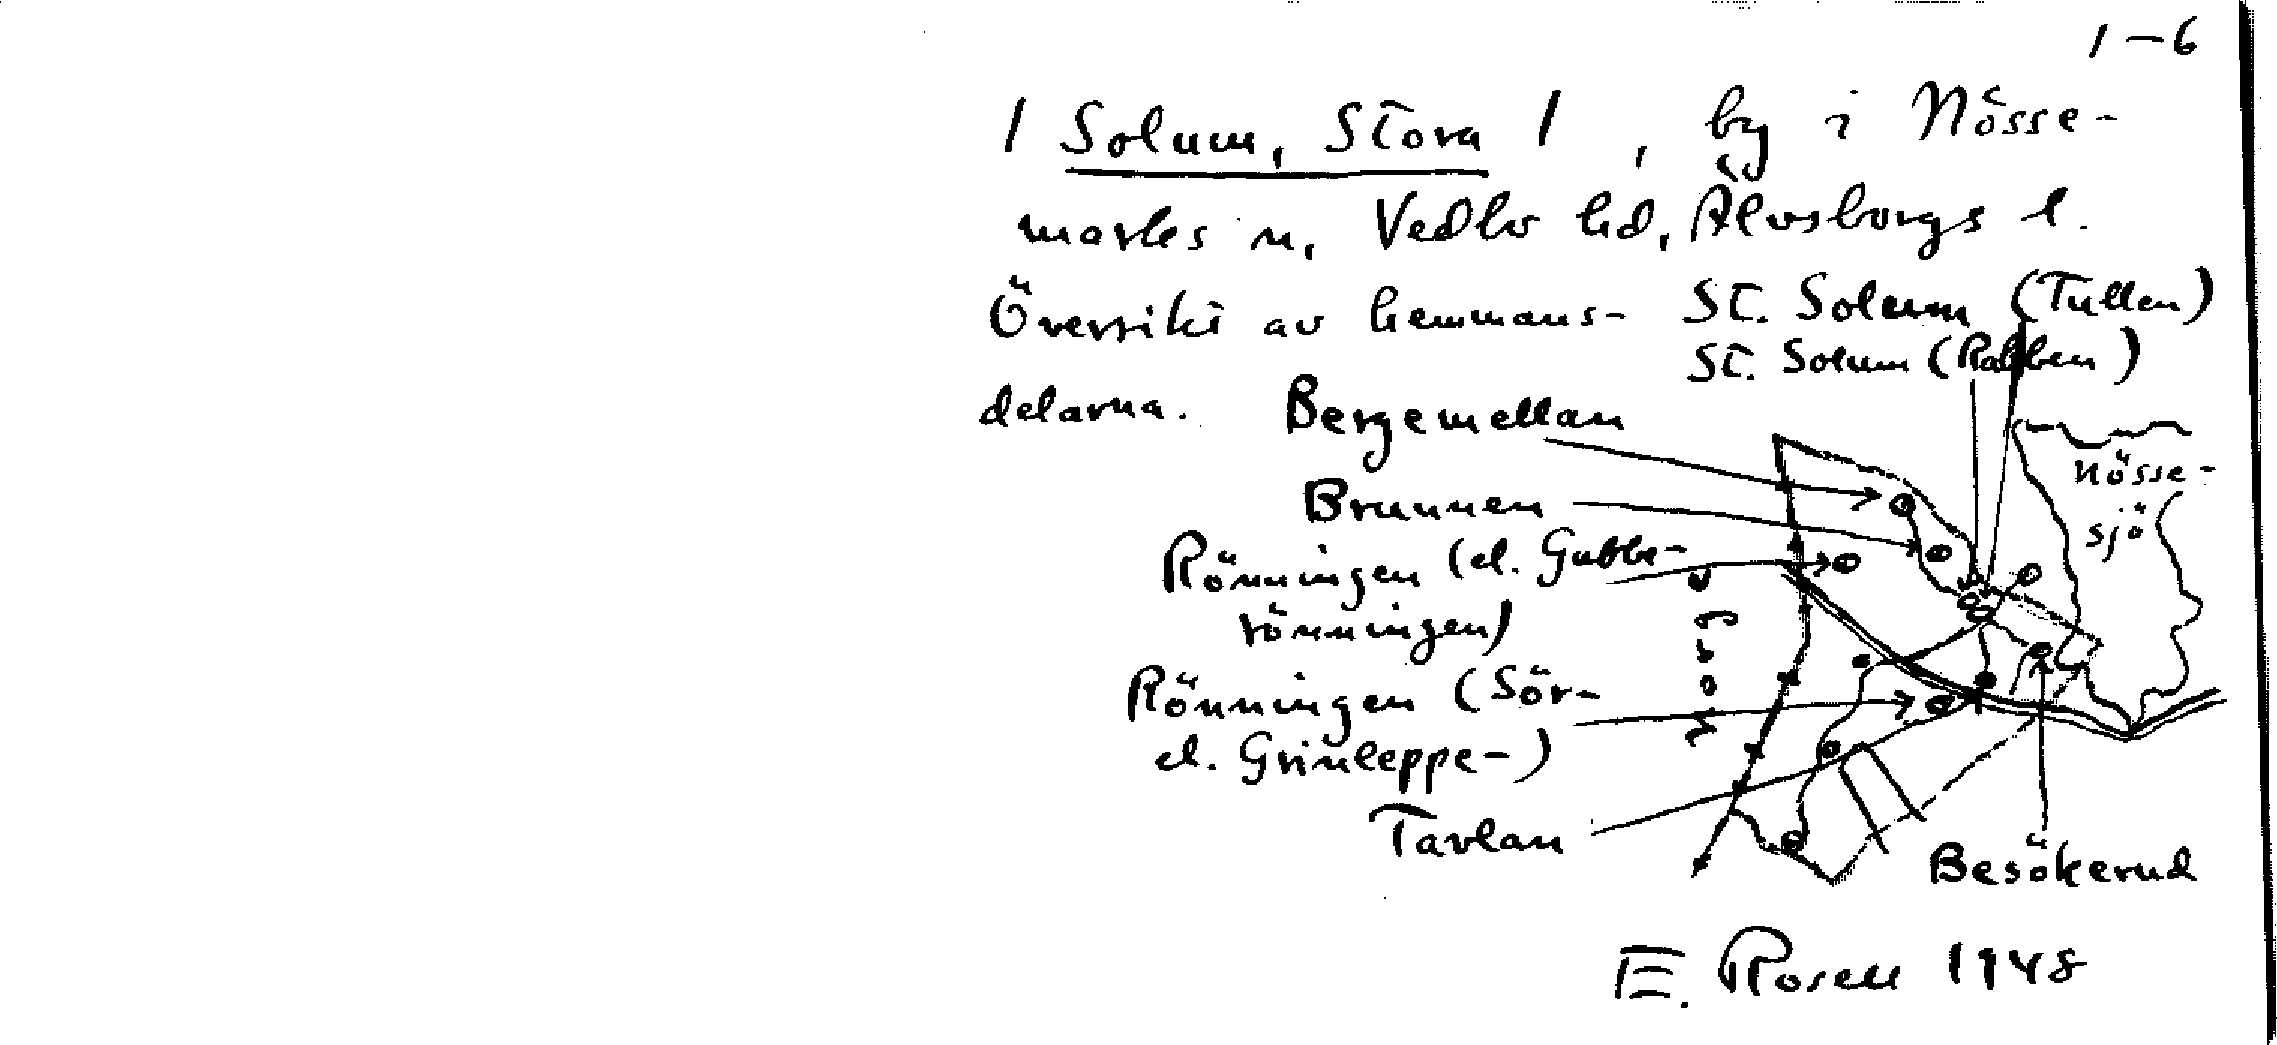 1–6
/ Solum, Stora / , by i Nösse-
marks sn, Vedbo hd, Älvsborgs l.
Översikt av hemmans-
delarna.
St. Solum (Tullen)
St. Solum (Rabben)
Bergemellan
Brunnen
Rönningen (el. Gubbe-
rönningen)
Rönningen (Sör-
el. Grinleppe-)
Tavlan
Norge
Nösse-
sjö
Besökerud
E. Rosell 1948